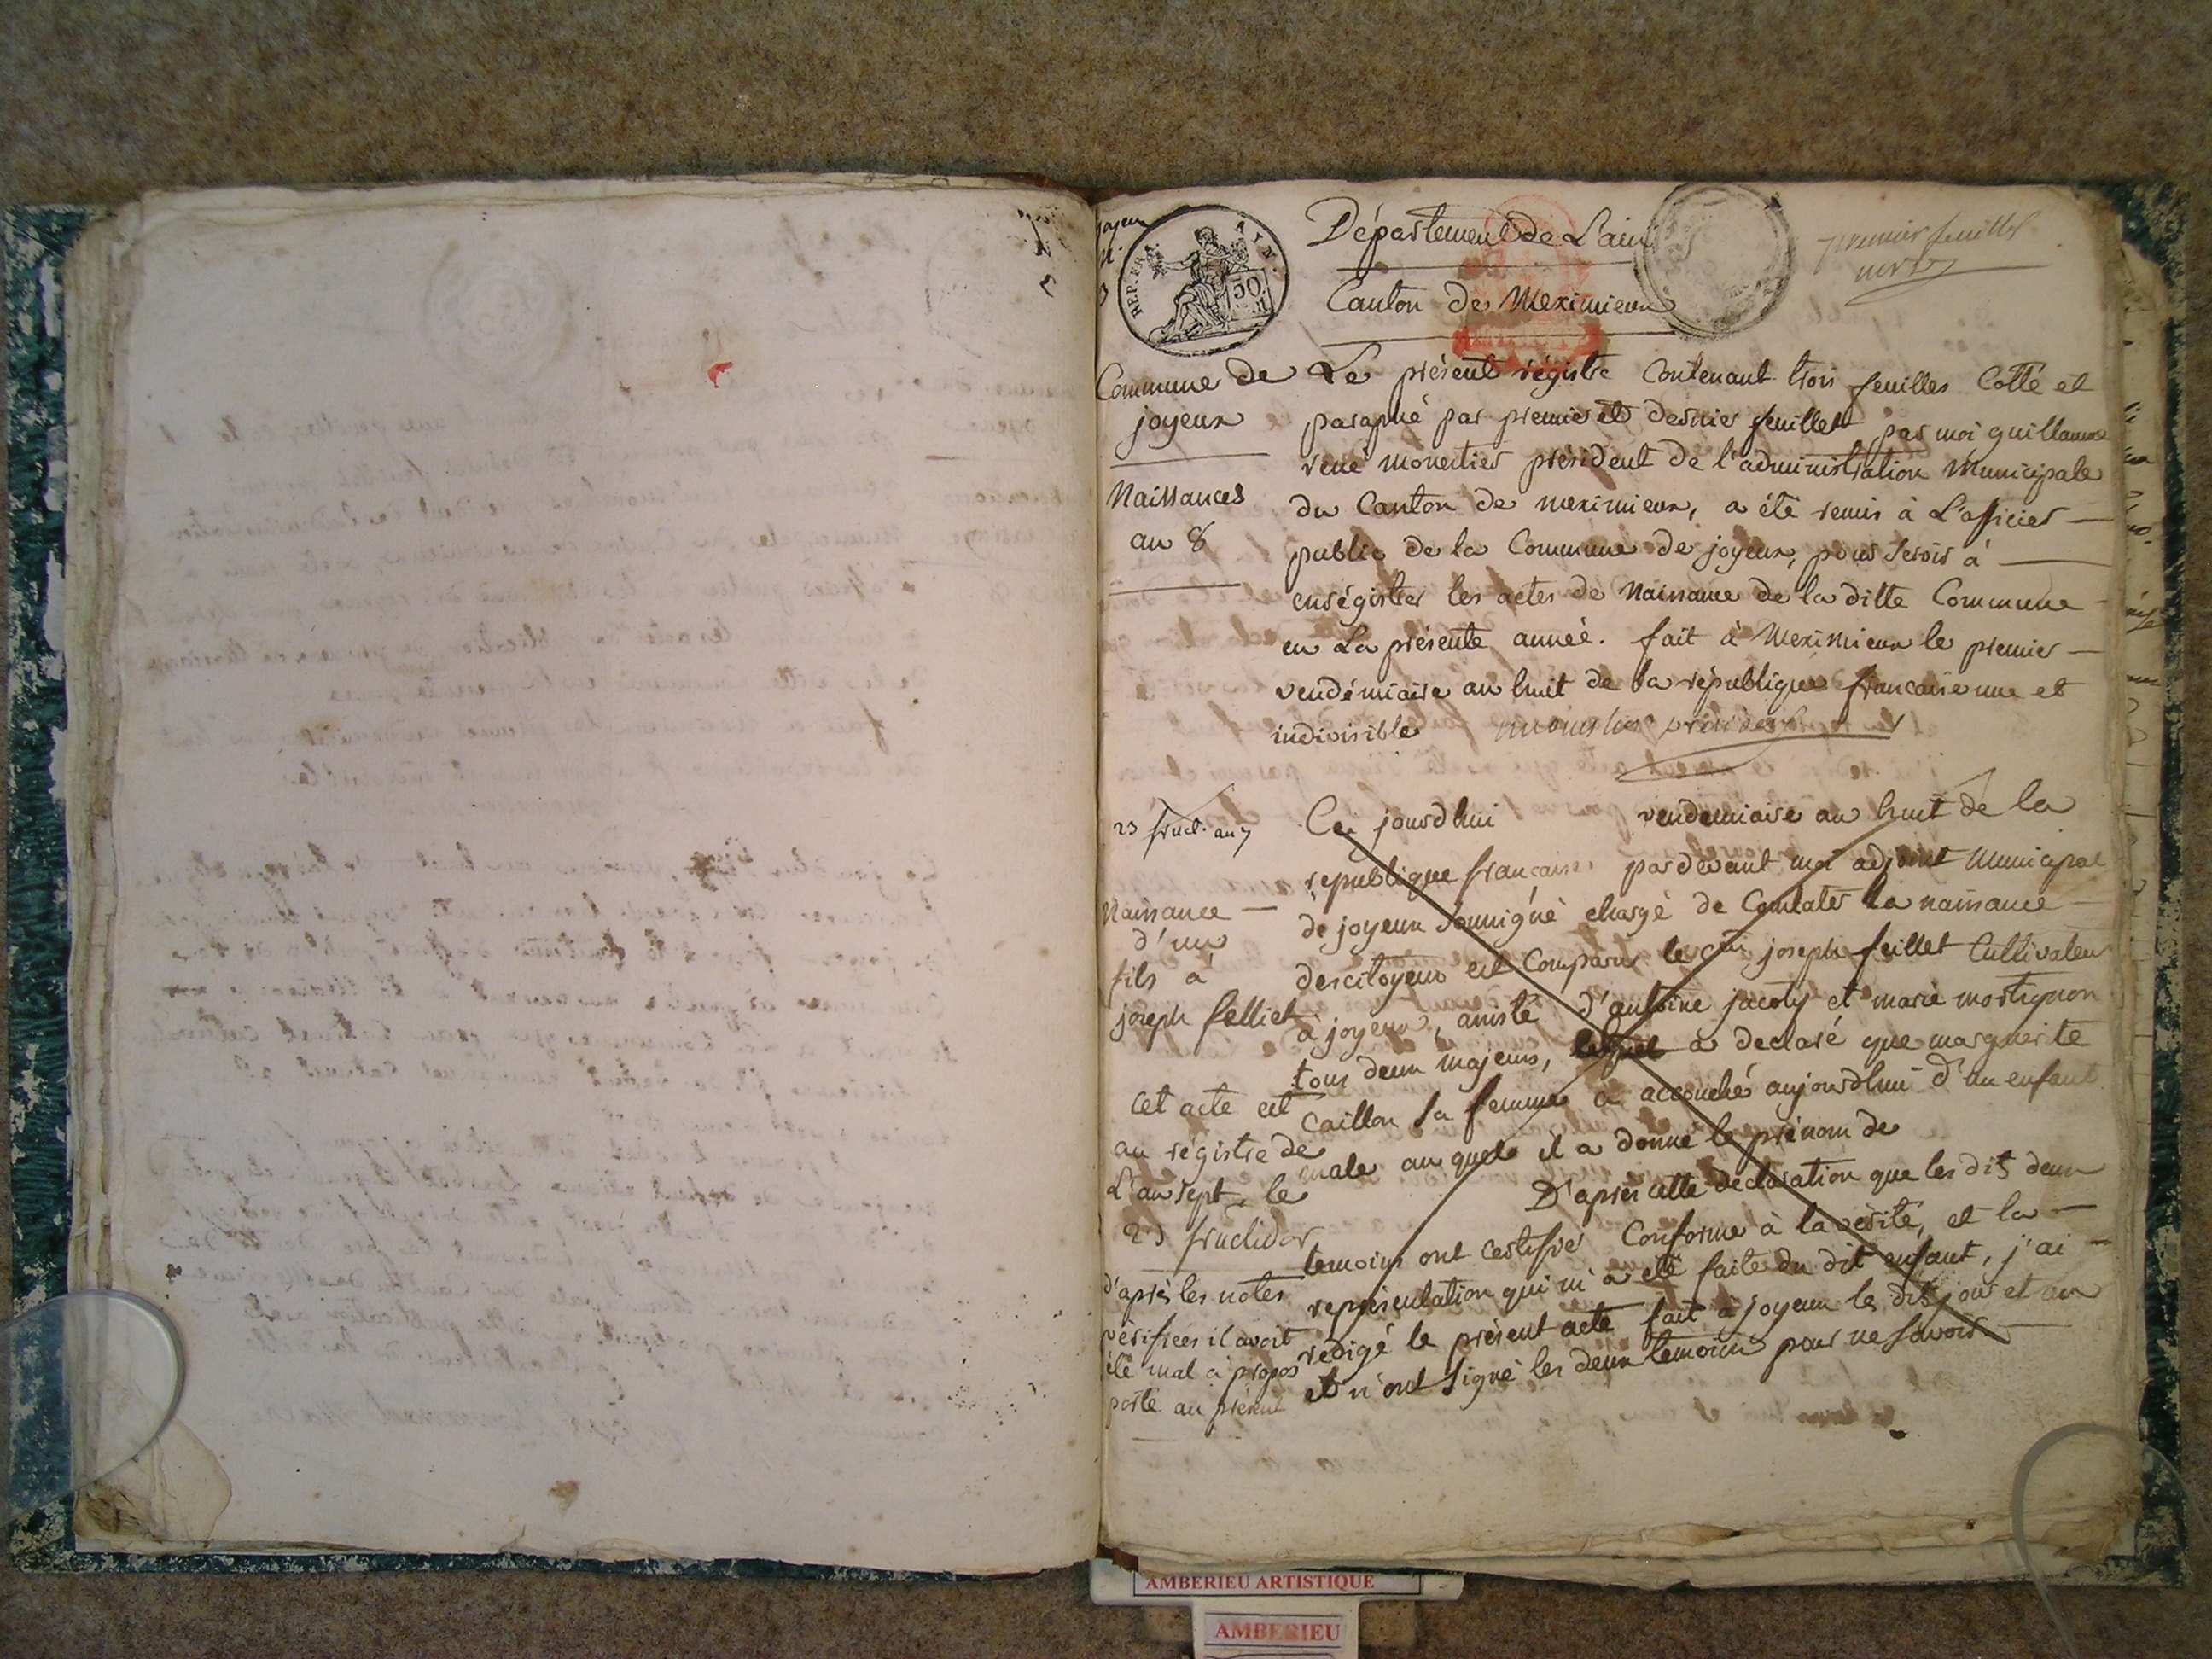 REP. FRA. AIN.
50
Département de L'ain
premier feuillet
Canton de Meximieux
Commune de
joyeux
Naissances
an 8
Le présent régistre Contenant trois feuilles Cotté et
paraphé par premier et dernier feuillet par moi guillaume
rené monestier président de l'administration Municipale
du Canton de meximieux, a été remis à L'officier
public de la Commune de joyeux, pour servir à
enségistrer les actes de Naissance de la ditte Commune
en La présente année. fait à Meximieux le premier
vendémiaire an huit de la république francaise une et
indivisible monestier président
23 fruct. an 7
Naissance
d'un
fils à
joseph felliet
cet acte est
au régistre de
L'an sept, le
23 fructidor
d'après les notes
verifiées il avoit
été mal à propos
porté au présent
Ce jourdhui vendemiaire an huit de la
republique francaise pardevant moi adjoint Municipal
de joyeux soussigné chargé de Constater la naissance
des citoyens est Comparu le cen joseph feillet Cultivateur
à joyeux, assisté d'antoine jacoty et marie mortignon
tous deux majeurs, lequel a declaré que marguerite
Caillon sa femme a accouché aujourdhui d'un enfant
male au quel il a donné le prénom de
D'après cette déclaration que les dits deux
temoins ont certifié Conforme à la vérité, et la
représentation qui m'a été faite du dit enfant, j'ai
redigé le présent acte fait à joyeux les dits jour et an
et n'ont signé les deux temoins pour ne savoir
AMBERIEU ARTISTIQUE
AMBERIEU